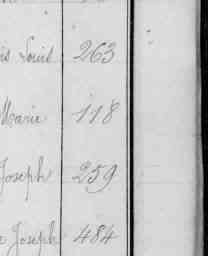 is Louis 263
Marie 118
Joseph 259
e Joseph 484